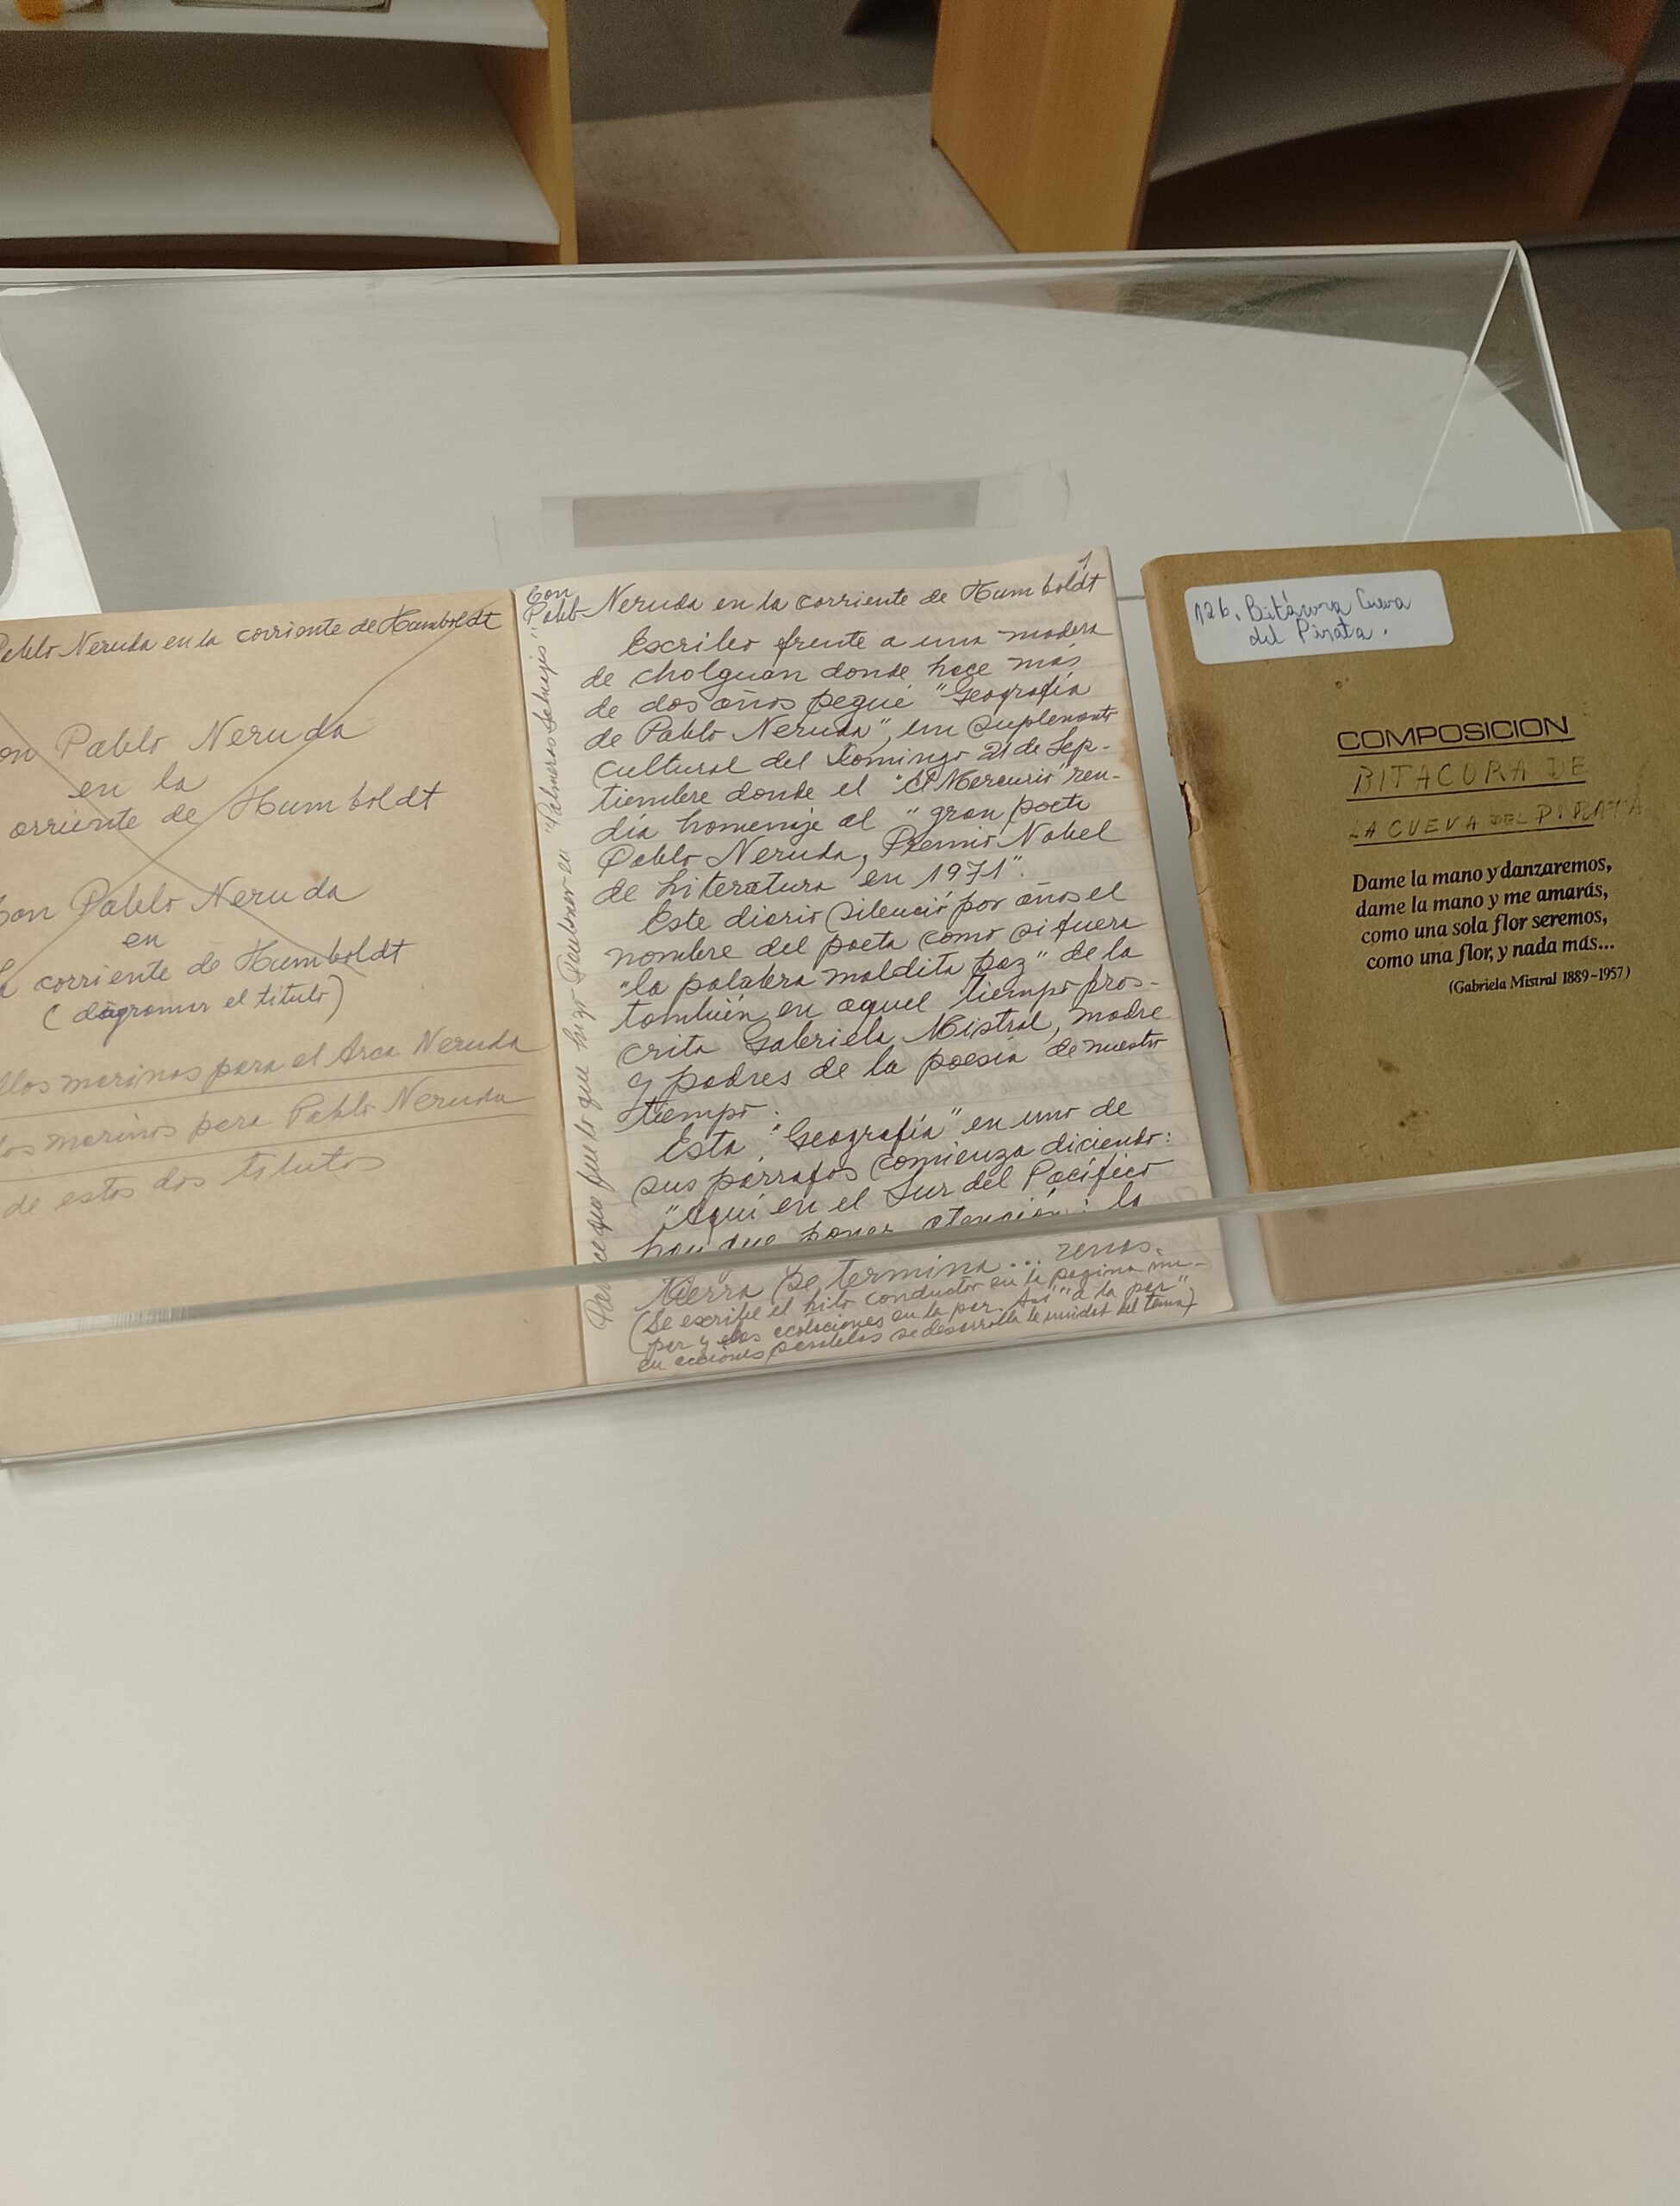 Pablo Neruda en la corriente de Humboldt
on Pablo Neruda
en la
orriente de Humboldt
Con Pablo Neruda
en
corriente de Humboldt
(diagramar el título)
llos marinos para el Arca Neruda
los marinos para Pablo Neruda
de estos dos títulos
1
Con
Pablo Neruda en la corriente de Humboldt
Escribo frente a una madera
de cholguán donde hace más
de dos años pegué "Geografía
de Pablo Neruda", un Suplemento
Cultural del Domingo 21 de Sep-
tiembre donde el "El Mercurio" ren-
día homenaje al "gran poeta
Pablo Neruda, Premio Nobel
de Literatura en 1971".
Este diario silenció por años el
nombre del poeta como si fuera
"la palabra maldita paz" de la
también en aquel tiempo pros-
crita Gabriela Mistral, madre
y padres de la poesía de nuestro
tiempo.
Esta "Geografía" en uno de
sus párrafos comienza diciendo:
"Aquí en el Sur del Pacífico
hay que poner atención: la
tierra se termina...
(Se escribe el hilo conductor en la página im-
par y las acotaciones en la par. Así "a la par"
en acciones paralelas se desarrolla la unidad del tema)
que fue lo que hizo Faulkner en "Palmeras Salvajes"
126. Bitácora Cueva
del Pirata.
COMPOSICION
BITACORA DE
LA CUEVA DEL PIRATA
Dame la mano y danzaremos,
dame la mano y me amarás,
como una sola flor seremos,
como una flor, y nada más...
(Gabriela Mistral 1889~1957)